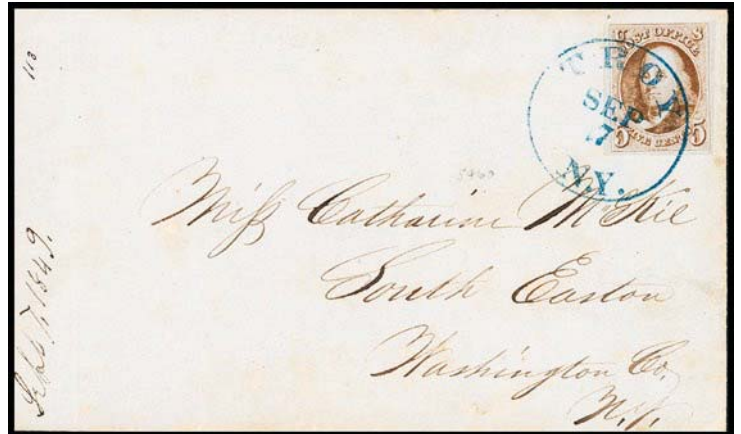 113
Sept. 7. 1849.
U S
POST OFFICE
FIVE CENTS
5 5
TROY
SEP
7
N.Y.
Miſs Catharine McKie
South Easton
Washington Co.
N.Y.